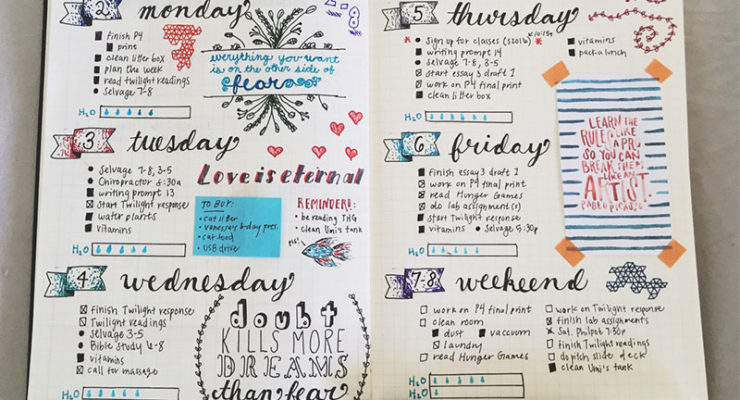 2 monday
finish P4
print
clean litter box
plan the week
read twilight readings
Selvage 7-8
H2O
everything you want
is on the other side of
fear
3 tuesday
Selvage 7-8, 3-5
Chiropractor 8:30a
writing prompt 13
Start Twilight response
water plants
vitamins
H2O
Love is eternal
TO BUY:
cat litter
vanessa's b-day pres.
cat food
USB drive
REMINDER!:
be reading THG
clean Umi's tank
pls!
4 wednesday
finish Twilight response
Twilight readings
Selvage 3-5
Bible Study 6-8
vitamins
call for massage
H2O
doubt
KILLS MORE
DREAMS
than fear
5 thursday
Sign up for classes (SS2016)
writing prompt 14
Selvage 7-8, 3-5
start essay 3 draft 1
work on P4 final print
clean litter box
vitamins
pack a lunch
H2O
LEARN THE
RULES LIKE
A PRO
SO YOU CAN
BREAK THEM
LIKE AN
ARTIST.
PABLO PICASSO
6 friday
finish essay 3 draft 1
work on P4 final print
read Hunger Games
do lab assignment(s)
start Twilight response
vitamins Selvage 5:30p
H2O
7-8 weekend
work on P4 final print
clean room
dust vaccuum
laundry
read Hunger Games
work on Twilight response
finish lab assignments
Sat. Philpot 7:30p
finish Twilight readings
do pitch slide deck
clean Umi's tank
H2O
H2O